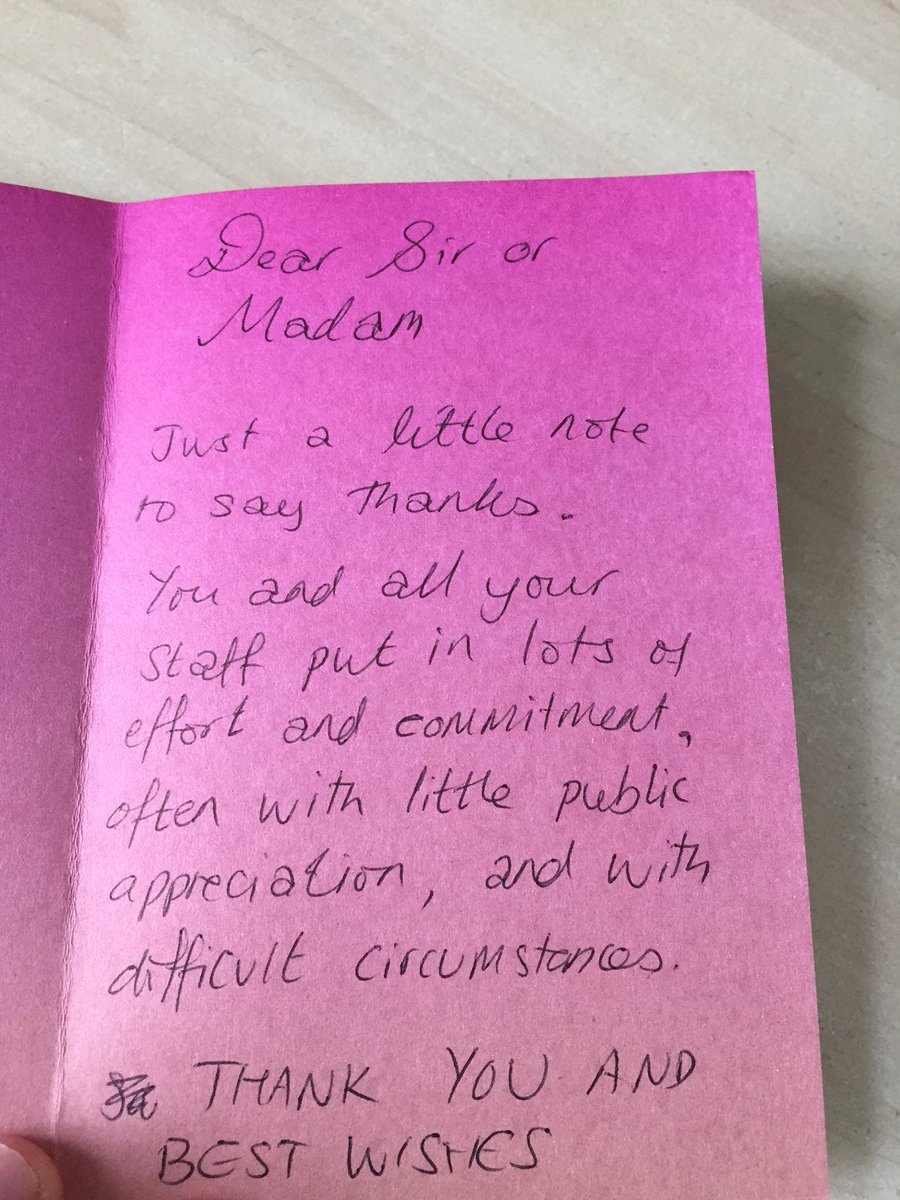 Dear Sir or
Madam
Just a little note
to say thanks.
You and all your
staff put in lots of
effort and commitment,
often with little public
appreciation, and with
difficult circumstances.
THANK YOU AND
BEST WISHES